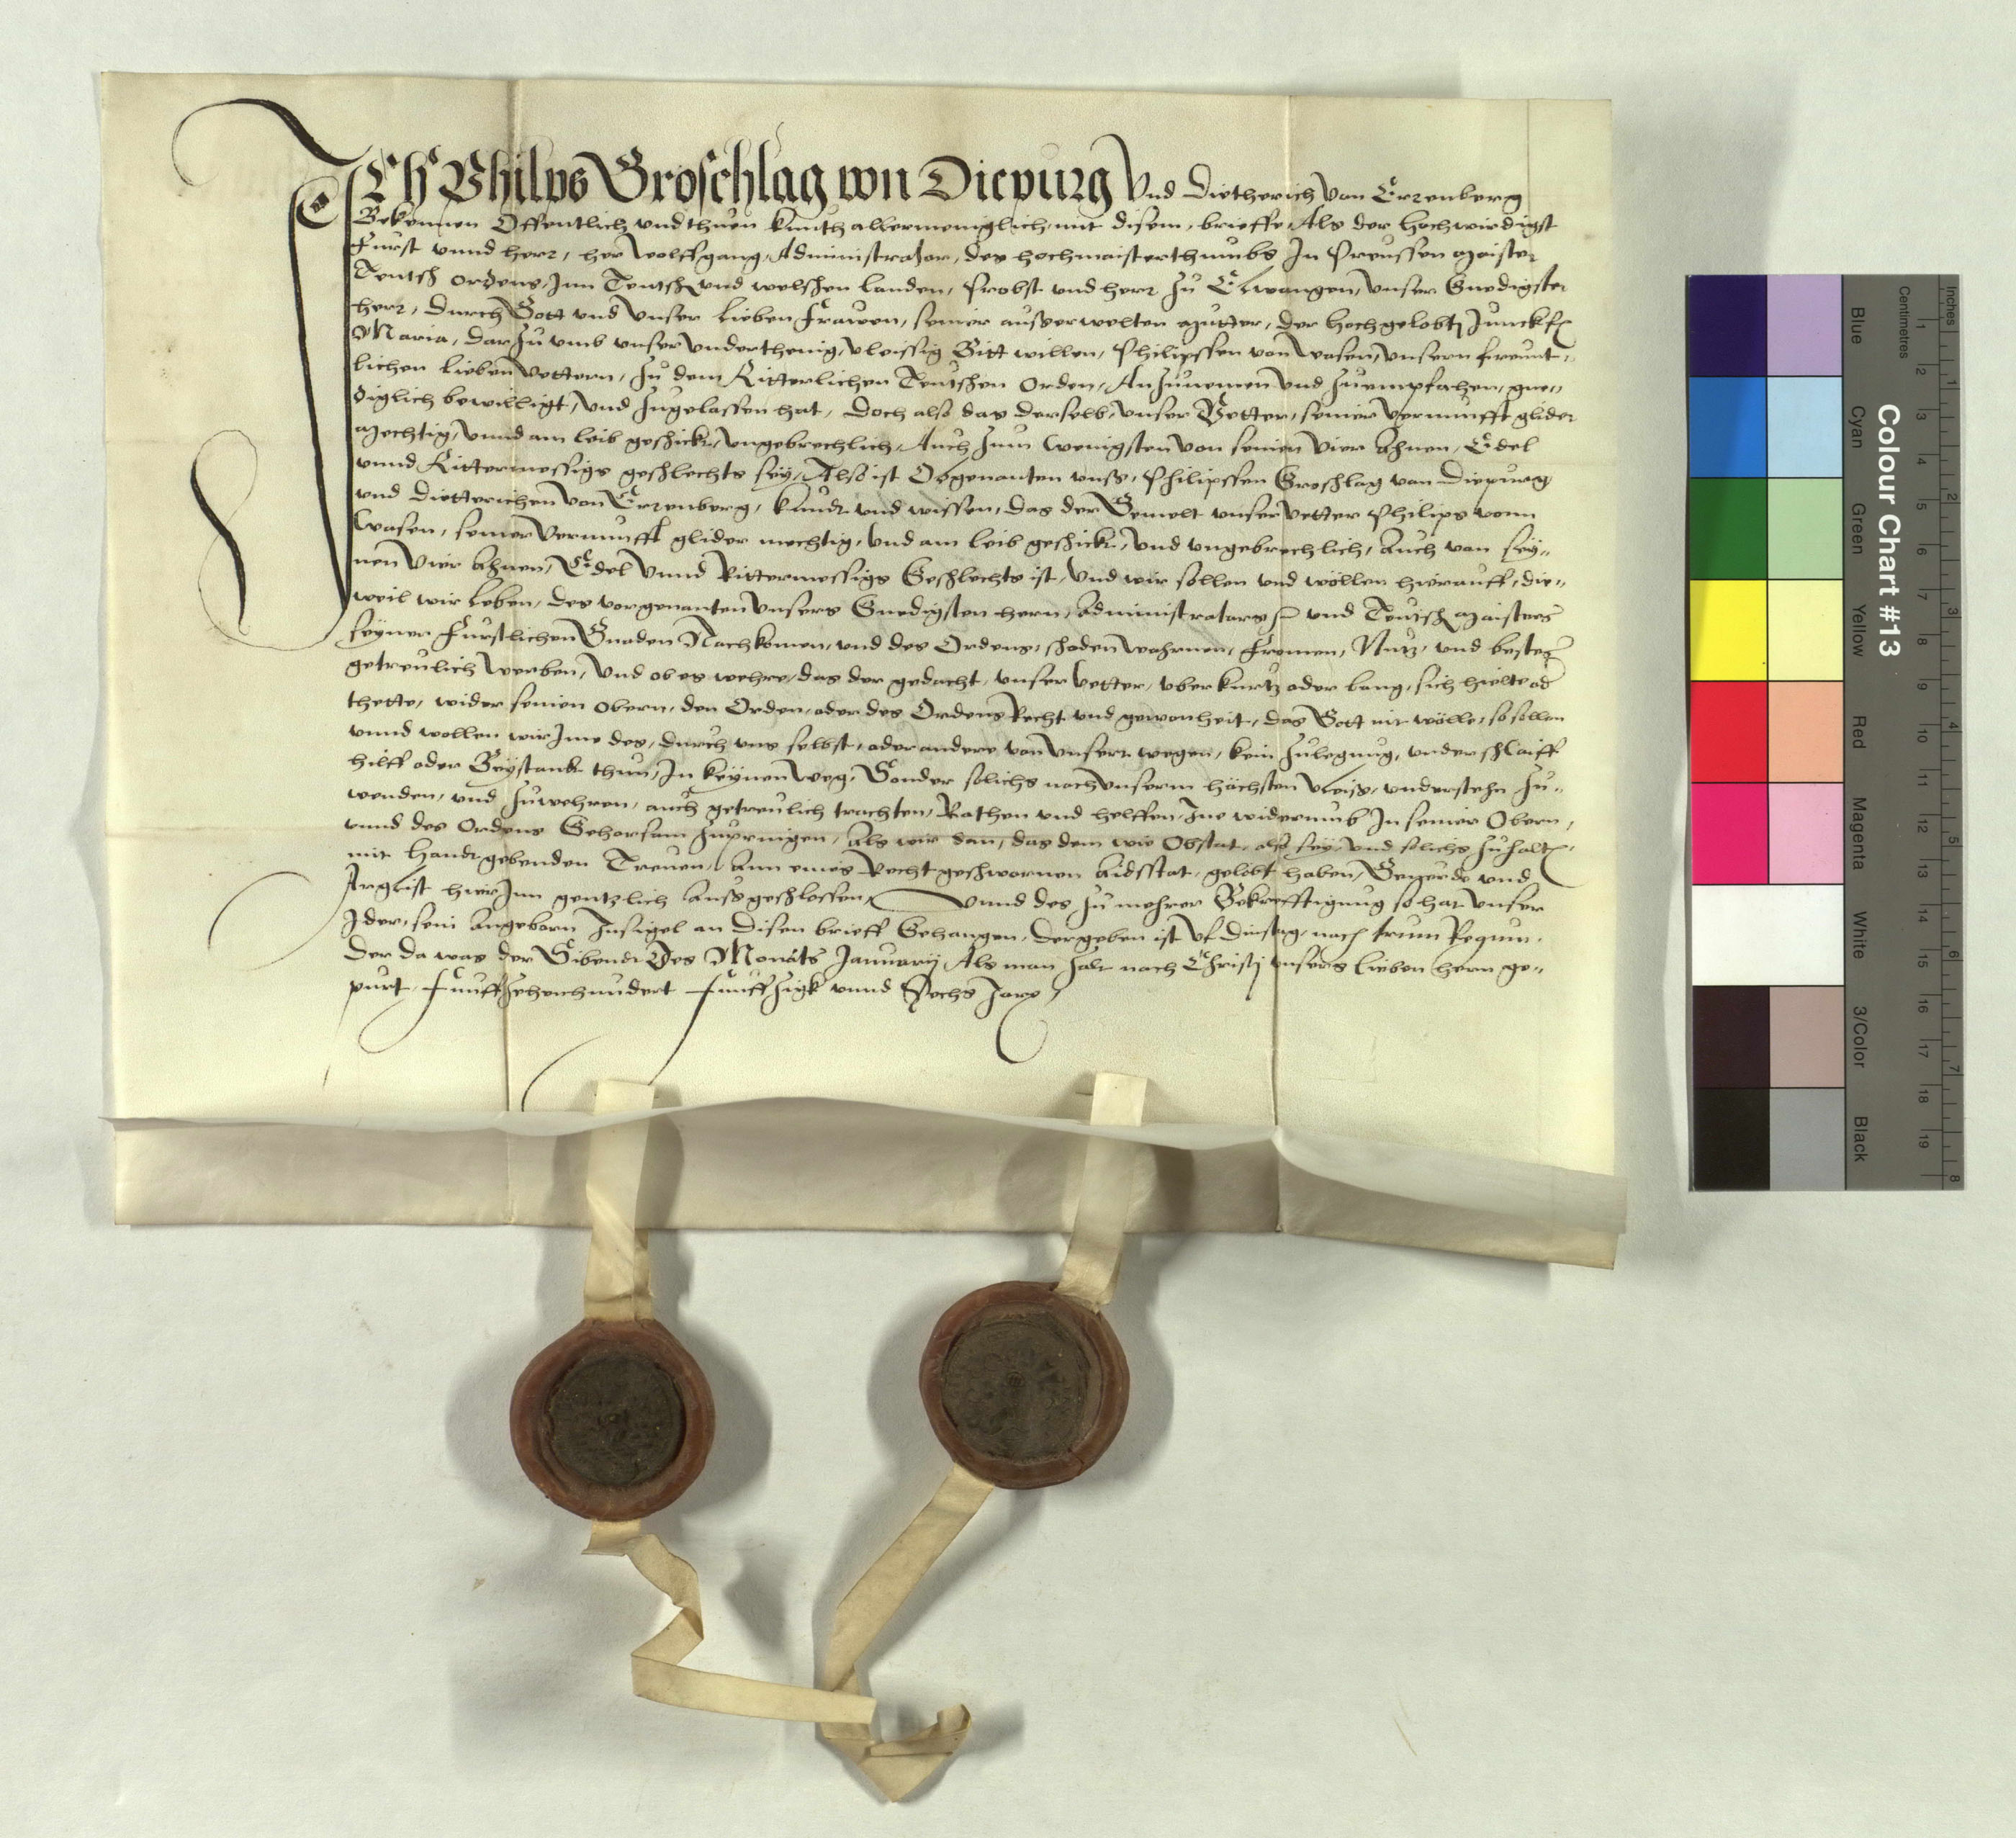 ICh Philps Groschlag von Diepurg Vnd Dietherich von Erzenberg
Bekennen Offentlich vnd thuen kunth allermeniglich, mit disem, brieffe, Als der hochwirdigst
Furst vnnd herr, her Wolffgang, Administrator, des hochmaisterthumbs In Preussen maister
Teutsch Ordens, Inn Teutsch vnd welschen landen, Probst vnd herr zu Elwangen, vnser Gnedigster
herr, durch Gott vnd vnser lieben frawen, seiner ausserwelten mutter, der hochgelobtn Junckfr
Maria, darzu vmb vnser vnderthenig, vleissig Bitt willen, Philipssen von Wasen, vnsern freunt-
lichen lieben Vettern, zu dem Ritterlichen Teutschen Orden, Anzunemen vnd zuempfachen, gne-
diglich bewilligt, vnd zugelassen hat, doch also das derselb, vnser Vetter, seiner vernunfft glider
mechtig, vnnd am leib geschickt, vngebrechlich, Auch zum wenigsten von seinen vier Ahnen, Edel
vnnd Rittermessigs geschlechts sey, Also ist Obgenanten vnss, Philipssen Groschlag von Diepurg
vnd Dietterichen von Erzenberg, kundt vnd wissen, das der Gemelt vnser vetter Philips vonn
Wasen, seiner Vernunfft glider mechtig, vnd am leib geschickt, vnd vngebrechlich, Auch von sey-
nen vier Ahnen, Edel vnnd Rittermessigs Geschlechts ist, vnd wir sollen vnd wöllen hierauff, die-
weil wir leben, des vorgenanten vnsers Gnedigsten hern, Administrators vnd Teutsch maisters
seyner Furstlichen Gnaden Nachkomen, vnd des Ordens, schaden wahrnen, fromen, Nutz, vnd bestes
getreulich werben, Vnd ob es wehre, das der gedacht, vnser Vetter, vber kurtz oder lang, sich hielte od
thette, wider seinen Obern, den Orden, oder des Ordens Recht vnd gewonheit, das Gott nit wölle, so sollen
vnnd wollen wir Ime des, durch vns selbst, oder andere von vnsern wegen, kein zulegung, vnderschlaiff
hilff oder Beystandt thun, In keynen weg, Sonder solichs nach vnserm höchsten vleiss, vnderstehn zu-
wenden, vnd zuwehren, auch getreulich trachten, Rathen vnd helffen, Ine widerumb In seiner Obern,
vnnd des Ordens Gehorsam zupringen, Als wir dan, das dem wie Obstat, also sey, vnd solichs zuhaltn,
mit handt gebenden Treuen, Ann eines Recht geschwornen Aidsstat, gelobt haben, Geuerde vnd
Arglist hier Inn gentzlich Aussgeschlossen, Vnnd des zu mehrer Bekrefftigung so hat vnser
Ider, sein Angeborn Insigel an disen brieff Gehangen, der geben ist Vf dinstag, nach trium Regum,
der da was der Sibendt Des Monäts Januarij Als man zalt nach Christj vnsers lieben hern ge-
purt, funffzehenhundert funffzigk vnnd Sechs Jare
Colour Chart #13
Blue Cyan Green Yellow Red Magenta White 3/Color Black
Centimetres 1 2 3 4 5 6 7 8 9 10 11 12 13 14 15 16 17 18 19
Inches 1 2 3 4 5 6 7 8